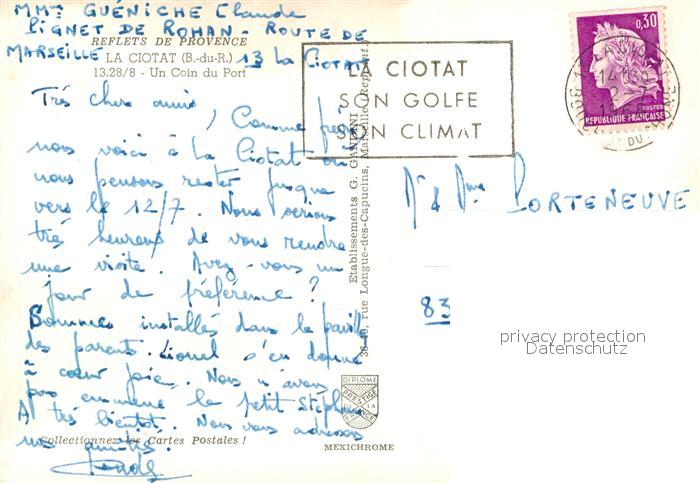 MMe GUÉNICHE Claude
PIGNET DE ROHAN - ROUTE DE
MARSEILLE 13 LA CIOTAT
REFLETS DE PROVENCE
LA CIOTAT (B.-du-R.)
13.28/8 - Un Coin du Port
Très chers amis,
Comme prévu
nous voici à La Ciotat où
nous pensons rester jusque
vers le 12/7. Nous serions
très heureux de vous rendre
une visite. Avez-vous un
jour de préférence ?
Sommes installés dans le pavillon
des parents. Lionel s'en donne
à cœur joie. Nous n'avons
pas emmené le petit Stéphane
A très bientôt. Nous vous adressons
nos amitiés.
Collectionnez les Cartes Postales !
Etablissements G. GANDINI
36-40, rue Longue-des-Capucins, Marseille
DIPLOME
PRESTIGE
FRANCE
MEXICHROME
LA CIOTAT
SON GOLFE
SON CLIMAT
0,30
POSTES
REPUBLIQUE FRANÇAISE
LA CIOTAT
Mr & Mme PORTENEUVE
83
privacy protection
Datenschutz